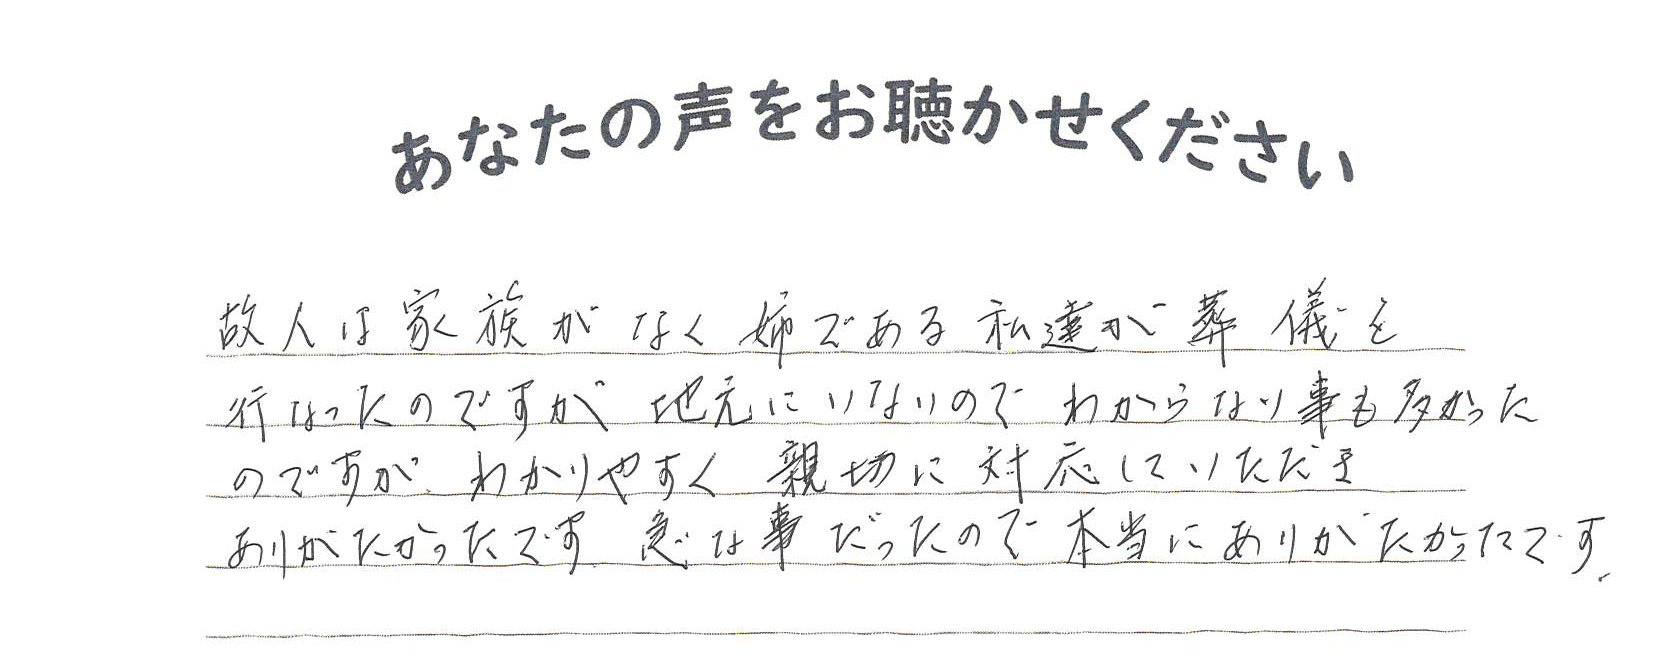 あなたの声をお聴かせください
故人は家族がなく姉である私達が葬儀を
行なったのですが地元にいないのでわからない事も多かった
のですが、わかりやすく親切に対応していただき
ありがたかったです。急な事だったので本当にありがたかったです。